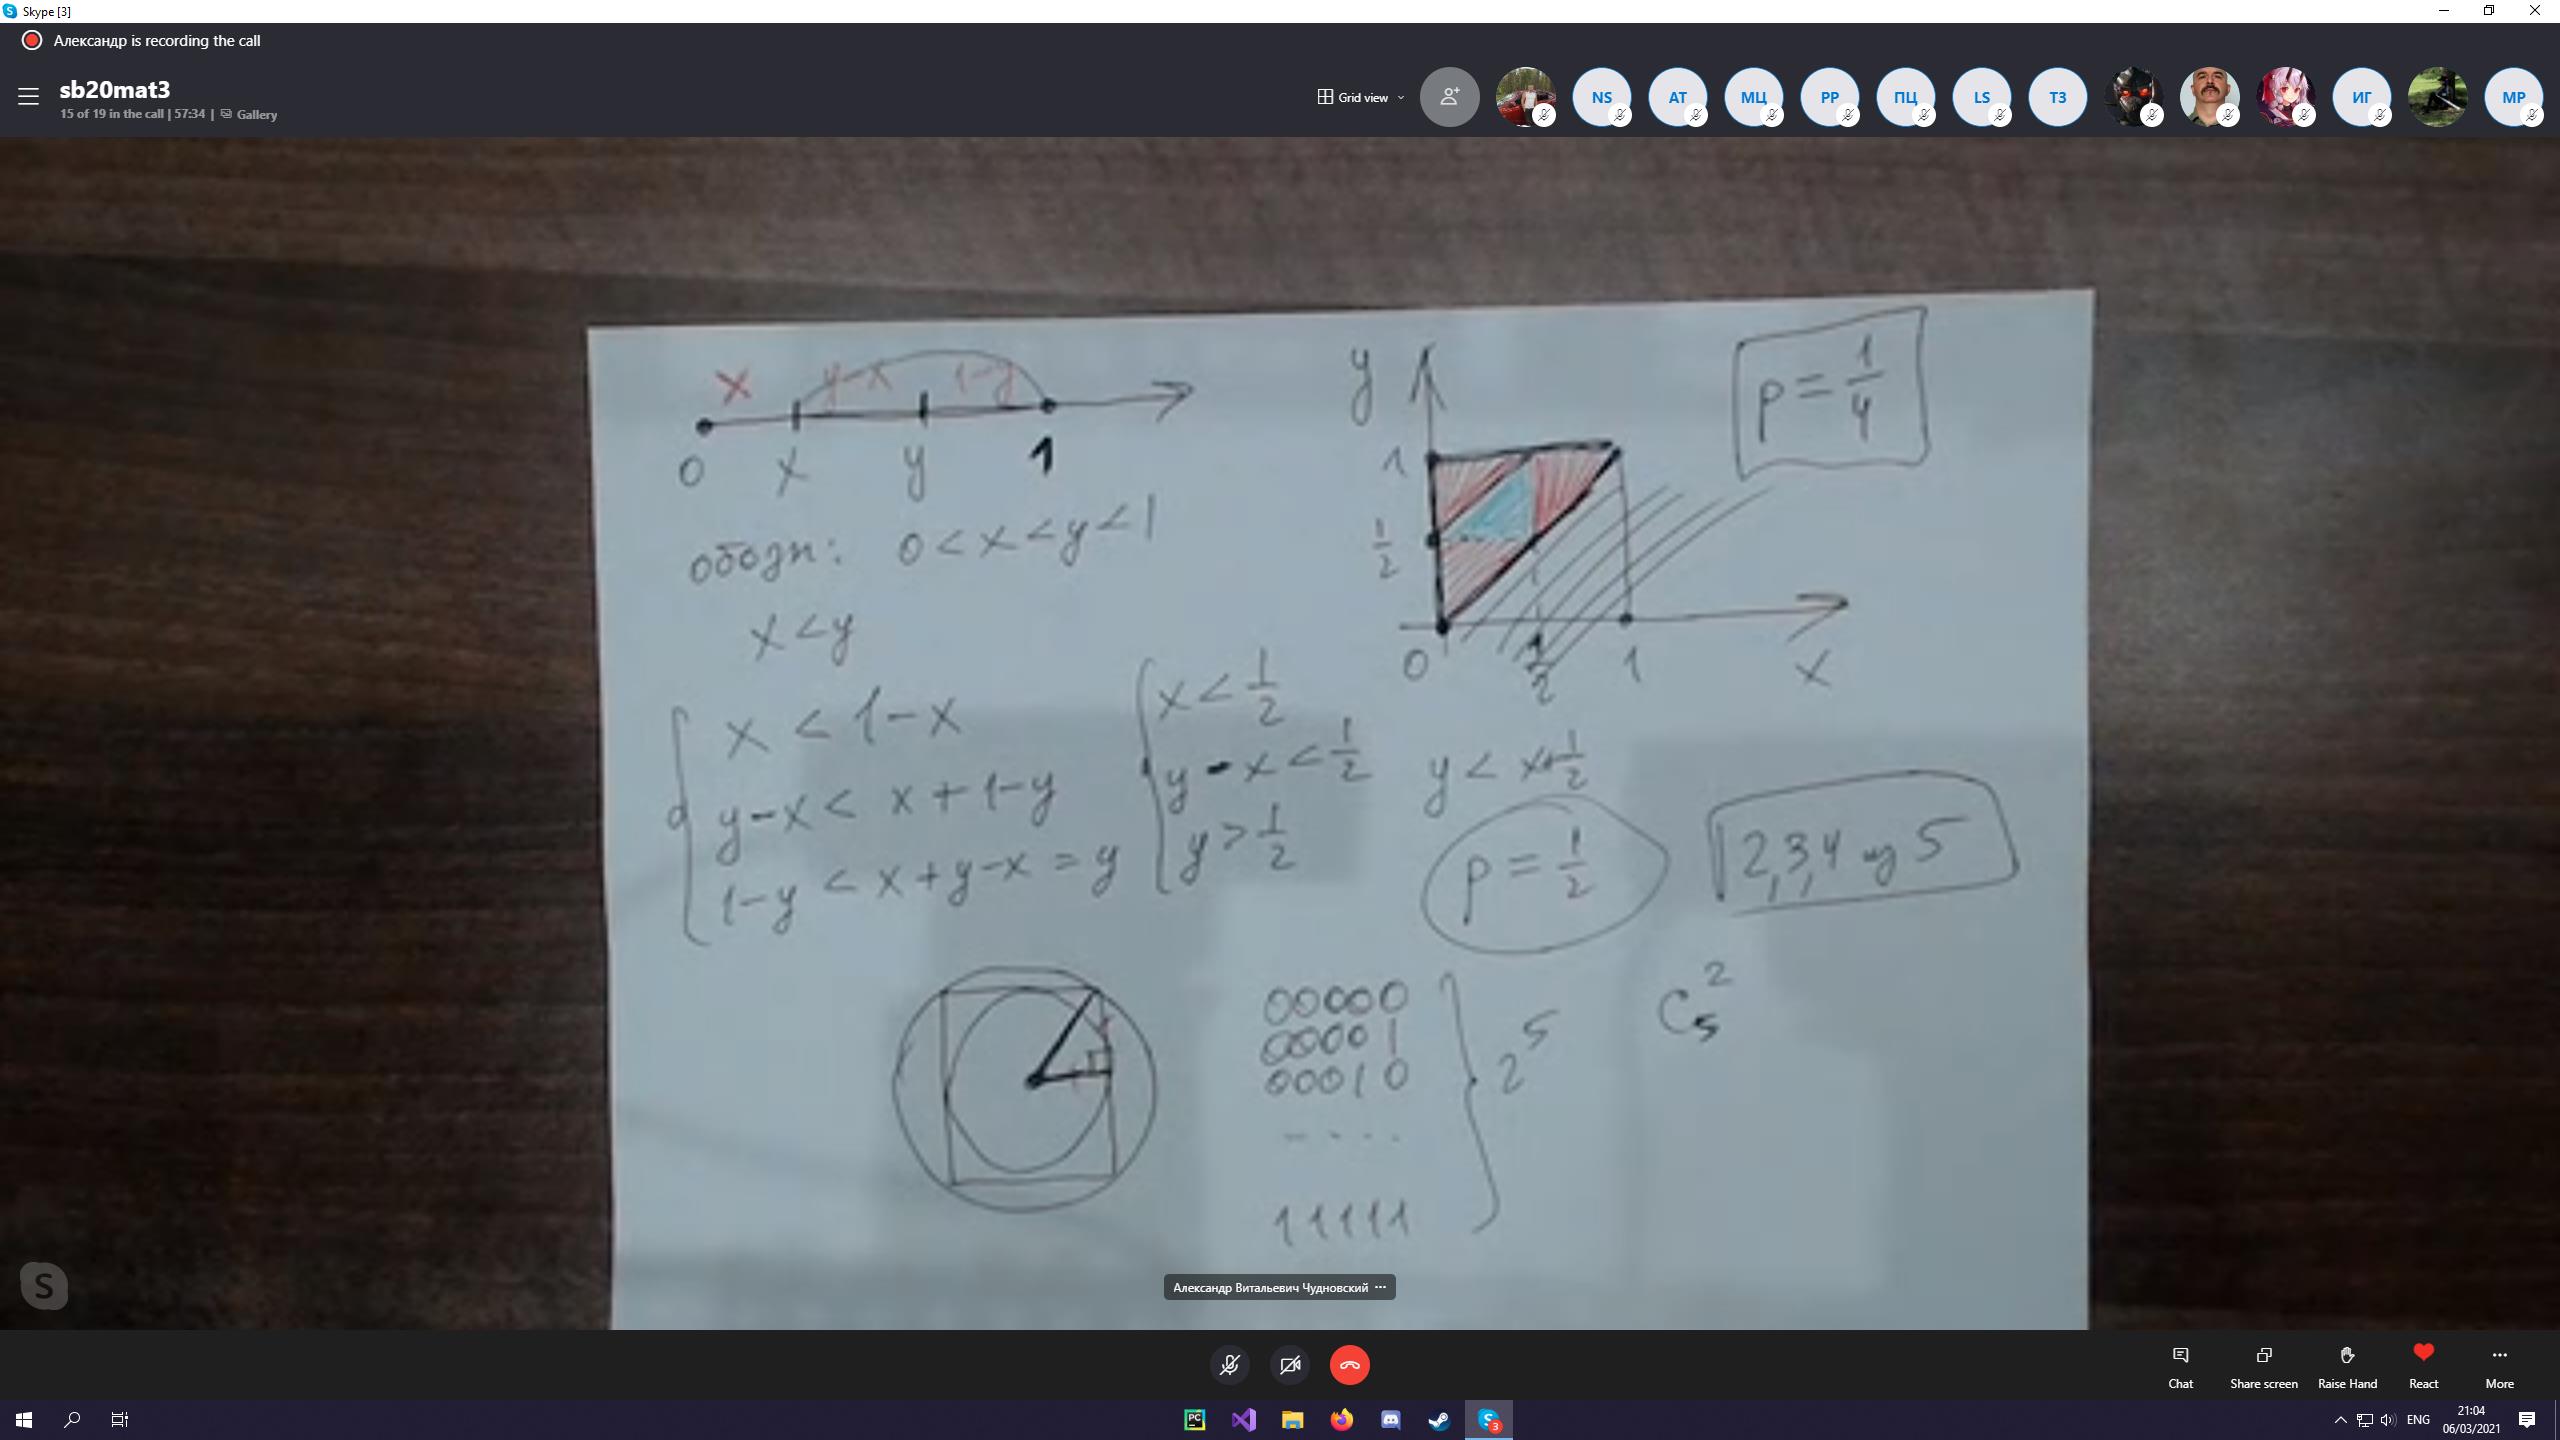 Skype [3]
Александр is recording the call
sb20mat3
15 of 19 in the call | 57:34 | Gallery
Grid view
NS
AT
МЦ
PP
ПЦ
LS
ТЗ
ИГ
MP
x y-x 1-y
0 x y 1
обозн: 0 < x < y < 1
x < y
x < 1-x
y-x < x+1-y
1-y < x+y-x = y
x < 1/2
y-x < 1/2
y > 1/2
y < x+1/2
y
1
1/2
0 1/2 1 x
p = 1/4
p = 1/2
2,3,4 из 5
00000
00001
00010
- - - -
11111
2^5
C_5^2
Александр Витальевич Чудновский
Chat
Share screen
Raise Hand
React
More
PC
ENG
21:04
06/03/2021